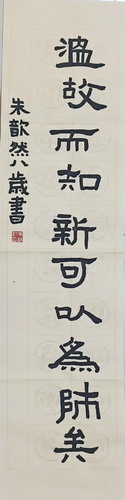 溫故而知新可以為師矣
朱歆然八歲書